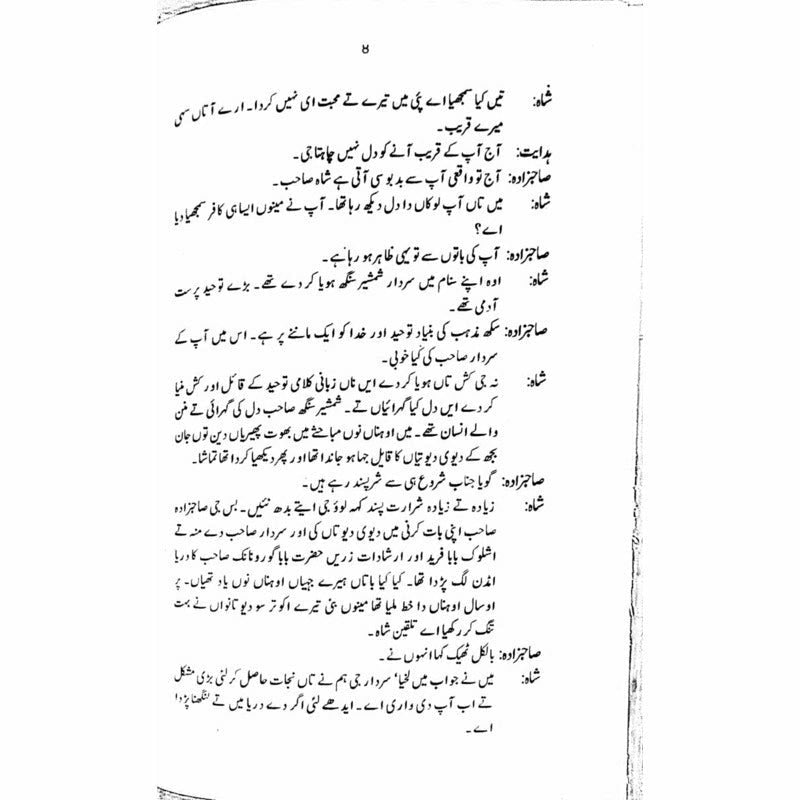 ۸
شاہ: تیں کیا سمجھیا اے پئی میں تیرے تے محبت ای نہیں کردا۔ ارے آ تاں سہی
میرے قریب۔
ہدایت: آج آپ کے قریب آنے کو دل نہیں چاہتا جی۔
صاحبزادہ: آج تو واقعی آپ سے بدبو سی آتی ہے شاہ صاحب۔
شاہ: میں تاں آپ لوکاں دا دل دیکھ رہا تھا۔ آپ نے مینوں ایسا ہی کافر سمجھیا دیا
اے؟
صاحبزادہ: آپ کی باتوں سے تو یہی ظاہر ہو رہا ہے۔
شاہ: اوہ اپنے سنام میں سردار شمشیر سنگھ ہویا کر دے تھے۔ بڑے توحید پرست
آدمی تھے۔
صاحبزادہ: سکھ مذہب کی بنیاد توحید اور خدا کو ایک ماننے پر ہے۔ اس میں آپ کے
سردار صاحب کی کیا خوبی۔
شاہ: نہ جی کش تاں ہویا کر دے ایں ناں زبانی کلامی توحید کے قائل اور کش منیا
کر دے ایں دل کیا گہرائیاں تے۔ شمشیر سنگھ صاحب دل کی گہرائی تے منن
والے انسان تھے۔ میں اوہناں نوں مباحثے میں بھوت پھیریاں دین توں جان
بجھ کے دیوی دیوتیاں کا قایل جہا ہو جاندا تھا اور پھر دیکھیا کردا تھا تماشا۔
صاحبزادہ: گویا جناب شروع ہی سے شرپسند رہے ہیں۔
شاہ: زیادہ تے زیادہ شرارت پسند کہہ لوؤ جی ایتے بدھ نئیں۔ بس جی صاحبزادہ
صاحب اپنی بات کرنی میں دیوی دیوتاں کی اور سردار صاحب دے منہ تے
اشلوک بابا فرید اور ارشادات زریں حضرت بابا گورو نانک صاحب کا دریا
امڈن لگ پڑدا تھا۔ کیا کیا باتاں ہیرے جہیاں اوہناں نوں یاد تھیاں۔ پر
اوسال اوہناں دا خط ملیا تھا مینوں بئی تیرے اکوتر سو دیوتانواں نے بہت
تنگ کر رکھیا اے تلقین شاہ۔
صاحبزادہ: بالکل ٹھیک کہا انہوں نے۔
شاہ: میں نے جواب میں لخیا' سردار جی ہم نے تاں نجات حاصل کر لئی بڑی مشکل
تے اب آپ دی واری اے۔ ایدھے لئی اگر دے دریا میں تے لنگھنا پڑدا
اے۔